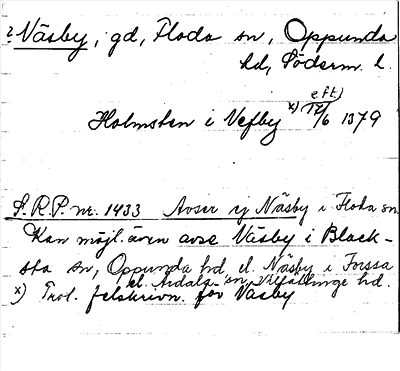 ? Näsby, gd, Floda sn, Oppunda
hd, Söderm. l.
eft)
Holmsten i Vesby x) 12/6 1379
S.R.P. nr. 1433 Avser ej Näsby i Floda sn.
Kan möjl. även avse Väsby i Black-
sta sn, Oppunda hd el. Näsby i Forssa
el. Årdala sn, Villåttinge hd.
x) Trol. felskrivn. för Väsby